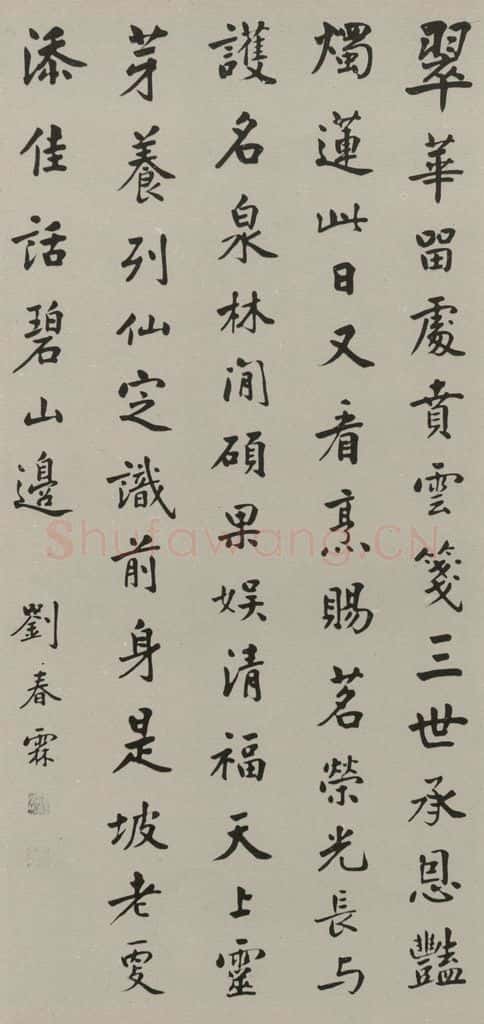 翠華留處賁雲箋三世承恩豔
燭蓮此日又看烹賜茗榮光長与
護名泉林間碩果娛清福天上靈
芽養列仙定識前身是坡老更
添佳話碧山邊
劉春霖
Shufawang.CN